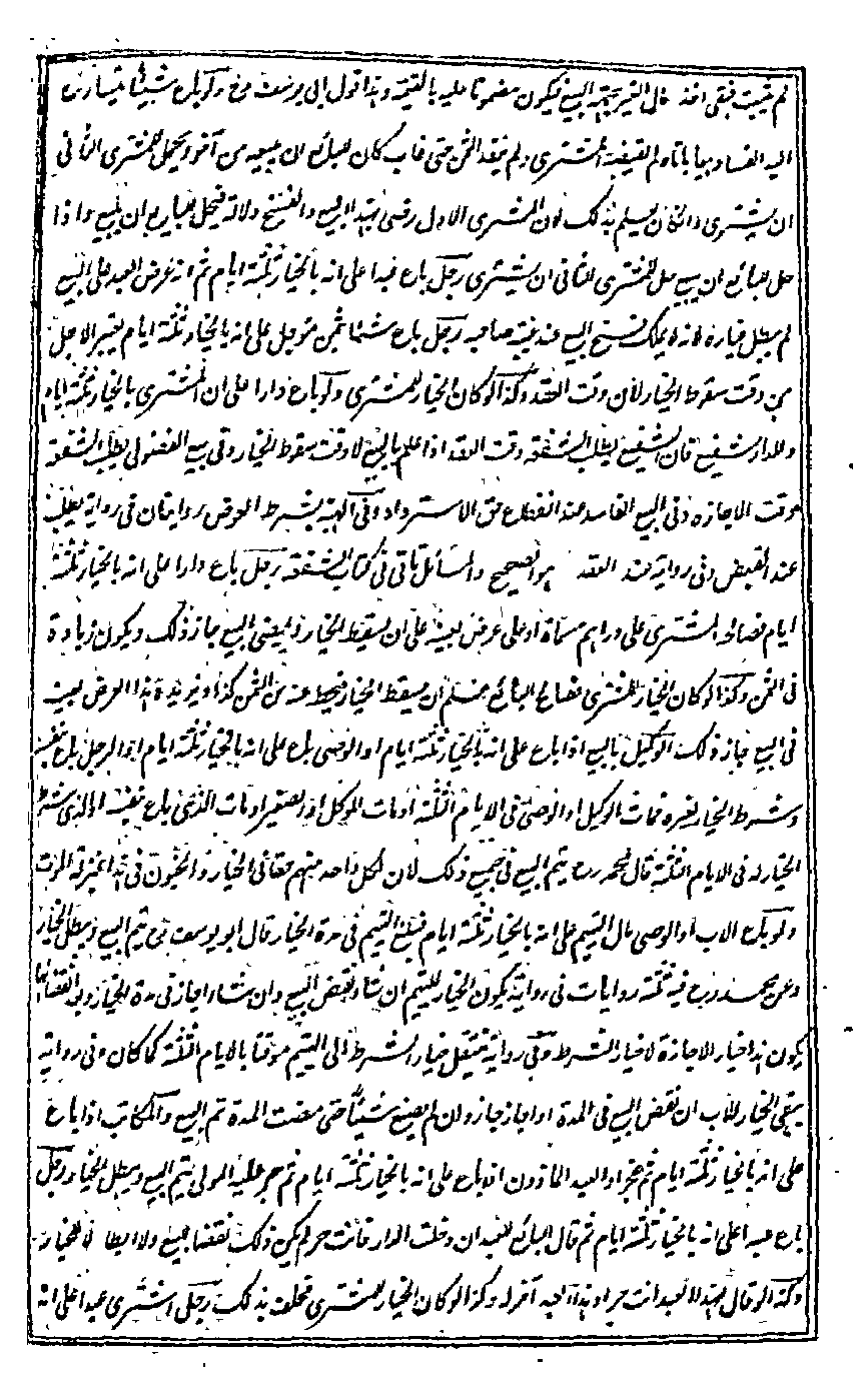 لم يثبت فبقى اخذ مال الغير بجهة البيع فيكون مضمونا عليه بالقيمة وهذا قول ابى يوسف رح ولو باع شيئا يتسارع
اليه الفساد بيعا باتا ولم يقبضه المشترى ولم ينقد الثمن حتى غاب كان للبائع ان يبيعه من آخر ويحل للمشترى الثانى
ان يشترى وان كان يعلم بذلك لان المشترى الاول رضى بهذا البيع والفسخ دلالة فيحل للبايع ان يبيع واذا
حل للبائع ان يبيع حل للمشترى الثانى ان يشترى رجل باع عبدا على انه بالخيار ثلثة ايام ثم انه عرض العبد على البيع
لم يبطل خياره لانه لا يملك فسخ البيع عند غيبة صاحبه رجل باع شيئا بثمن مؤجل على انه بالخيار ثلثة ايام يعتبر الاجل
من وقت سقوط الخيار لا من وقت العقد وكذا لو كان الخيار للمشترى ولو باع دارا على ان المشترى بالخيار ثلثة ايام
وللدار شفيع فان الشفيع يطلب الشفعة وقت العقد اذا علم بالبيع لا وقت سقوط الخيار وفى بيع الفضولى يطلب الشفعة
وقت الاجازه وفى البيع الفاسد عند انقطاع حق الاسترداد وفى الهبة بشرط العوض روايتان فى رواية يطلب
عند القبض وفى رواية عند العقد هو الصحيح والمسائل تاتى فى كتاب الشفعة رجل باع دارا على انه بالخيار ثلثة
ايام فصالحه المشترى على دراهم مسماة او على عرض بعينه على ان يسقط الخيار ويمضى البيع جاز ذلك ويكون زيادة
فى الثمن وكذا لو كان الخيار للمشترى فصالح البائع على ان يسقط الخيار فيحط عنه من الثمن كذا او يزيده هذا العرض بعينه
فى البيع جاز ذلك الوكيل بالبيع اذا باع على انه بالخيار ثلثة ايام او الوصى باع على انه بالخيار ثلثة ايام او الرجل باع بنفسه
وشرط الخيار لغيره فمات الوكيل او الوصى فى الايام الثلثة او مات الموكل او الصغير او مات الذى باع بنفسه او الذى شرط
الخيار له فى الايام الثلثة قال محمد رح يتم البيع فى جميع ذلك لان لكل واحد منهم حقا فى الخيار والجنون فى هذا بمنزلة الموت
ولو باع الاب او الوصى مال اليتيم على انه بالخيار ثلثة ايام فبلغ اليتيم فى مدة الخيار قال ابو يوسف رح يتم البيع ويبطل الخيار
وعن محمد رح فيه ثلثة روايات فى رواية يكون الخيار لليتيم ان شاء نقض البيع وان شاء اجاز فى مدة الخيار وبعد انقضائها
يكون هذا خيار الاجازة لا خيار الشرط وفى رواية ينتقل خيار الشرط الى اليتيم موقتا بالايام الثلثة كما كان وفى رواية
يبقى الخيار للاب ان نقض البيع فى المدة او اجاز جاز وان لم يصنع شيئا حتى مضت المدة تم البيع والمكاتب اذا باع
على انه بالخيار ثلثة ايام ثم عجز او العبد الماذون اذا باع على انه بالخيار ثلثة ايام ثم حجر عليه المولى يتم البيع ويبطل الخيار رجل
باع عبدا على انه بالخيار ثلثة ايام ثم قال البائع للعبد ان دخلت الدار فانت حر لم يكن ذلك نقضا للبيع ولا ابطالا للخيار
وكذا لو قال لهذا العبد انت حر او هذا لعبد آخر له وكذا لو كان الخيار للمشترى فحلف بذلك رجل اشترى عبدا على انه